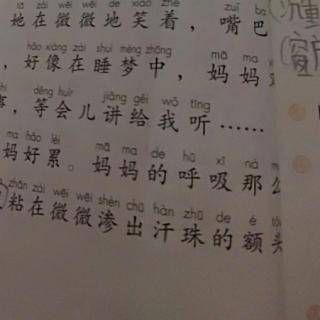 zài wēi wēi de xiào zhe zuǐ ba
她在微微地笑着，嘴巴
hǎo xiàng zài shuì mèng zhōng mā ma
，好像在睡梦中，妈妈
děng huìr jiǎng gěi wǒ tīng
事，等会儿讲给我听……
ma hǎo lèi mā ma de hū xī nà
妈好累。妈妈的呼吸那么
zhān zài wēi wēi shèn chū hàn zhū de é
粘在微微渗出汗珠的额头
沉重
窗户